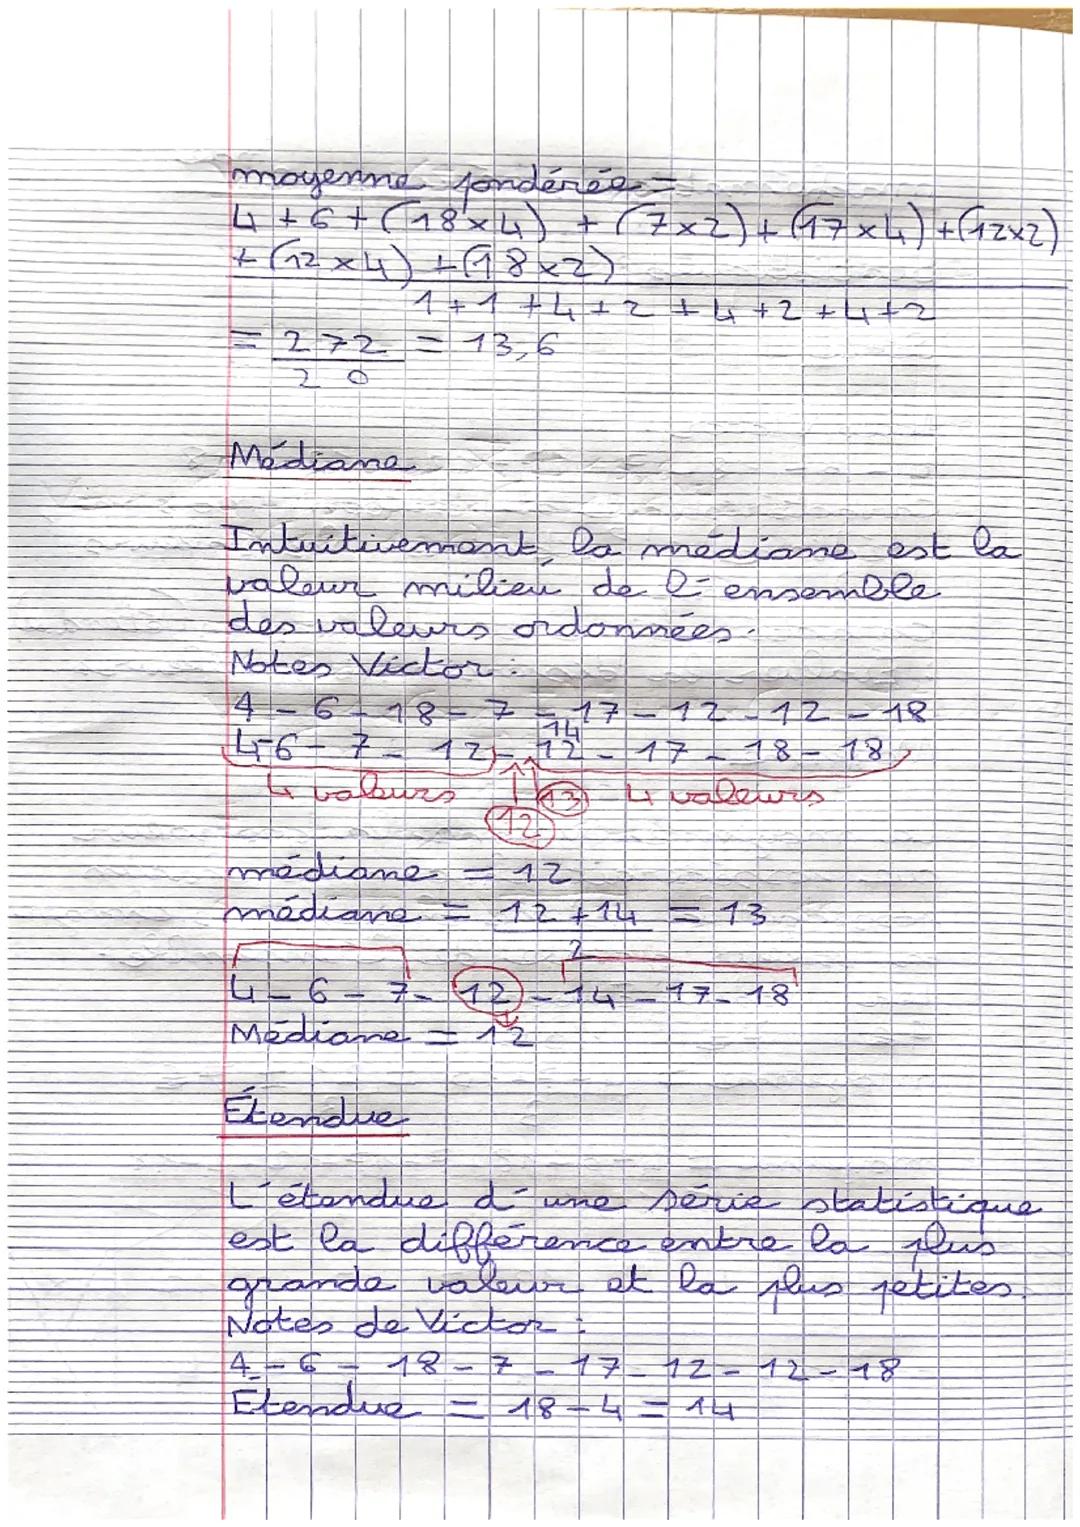 moyenne pondérée =
4 + 6 + (18 x 4) + (7 x 2) + (17 x 4) + (12 x 2)
+ (12 x 4) + (18 x 2)
1 + 1 + 4 + 2 + 4 + 2 + 4 + 2
= 272 = 13,6
20
Médiane
Intuitivement, la médiane est la
valeur milieu de l'ensemble
des valeurs ordonnées.
Notes Victor :
4 - 6 - 18 - 7 - 17 - 12 - 12 - 18
14
4 - 6 - 7 - 12 - 12 - 17 - 18 - 18
4 valeurs 13 4 valeurs
12
médiane = 12
médiane = 12 + 14 = 13
2
4 - 6 - 7 - 12 - 14 - 17 - 18
Médiane = 12
Étendue
L'étendue d'une série statistique
est la différence entre la plus
grande valeur et la plus petites.
Notes de Victor :
4 - 6 - 18 - 7 - 17 - 12 - 12 - 18
Étendue = 18 - 4 = 14